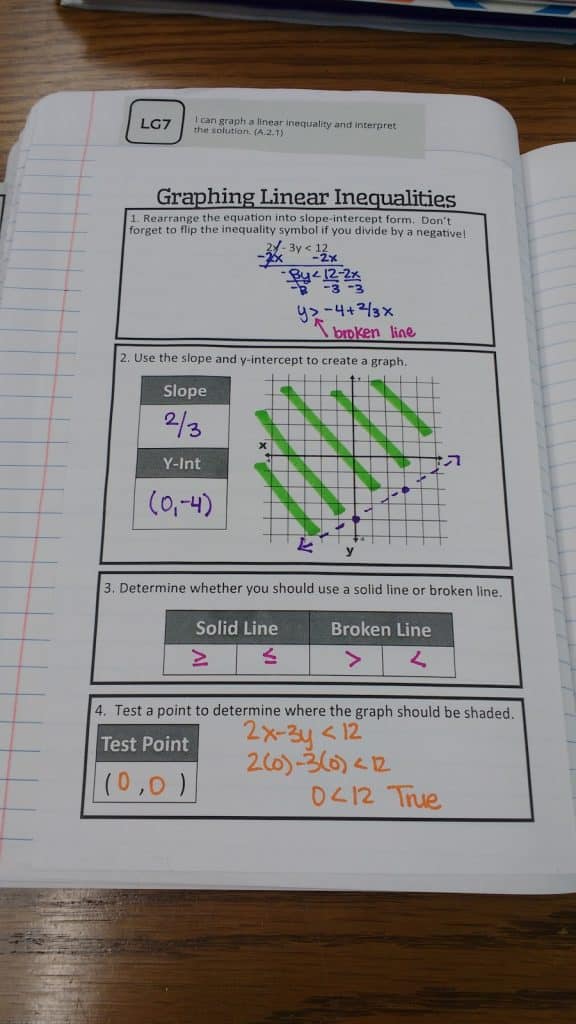 LG7
I can graph a linear inequality and interpret
the solution. (A.2.1)
Graphing Linear Inequalities
1. Rearrange the equation into slope-intercept form. Don't
forget to flip the inequality symbol if you divide by a negative!
2x - 3y < 12
-2x -2x
-3y < 12-2x
-3 -3 -3
y > -4+2/3x
broken line
2. Use the slope and y-intercept to create a graph.
Slope
2/3
Y-Int
(0,-4)
x
y
3. Determine whether you should use a solid line or broken line.
Solid Line Broken Line
≥ ≤ > <
4. Test a point to determine where the graph should be shaded.
Test Point
(0,0)
2x-3y < 12
2(0)-3(0) < 12
0<12 True